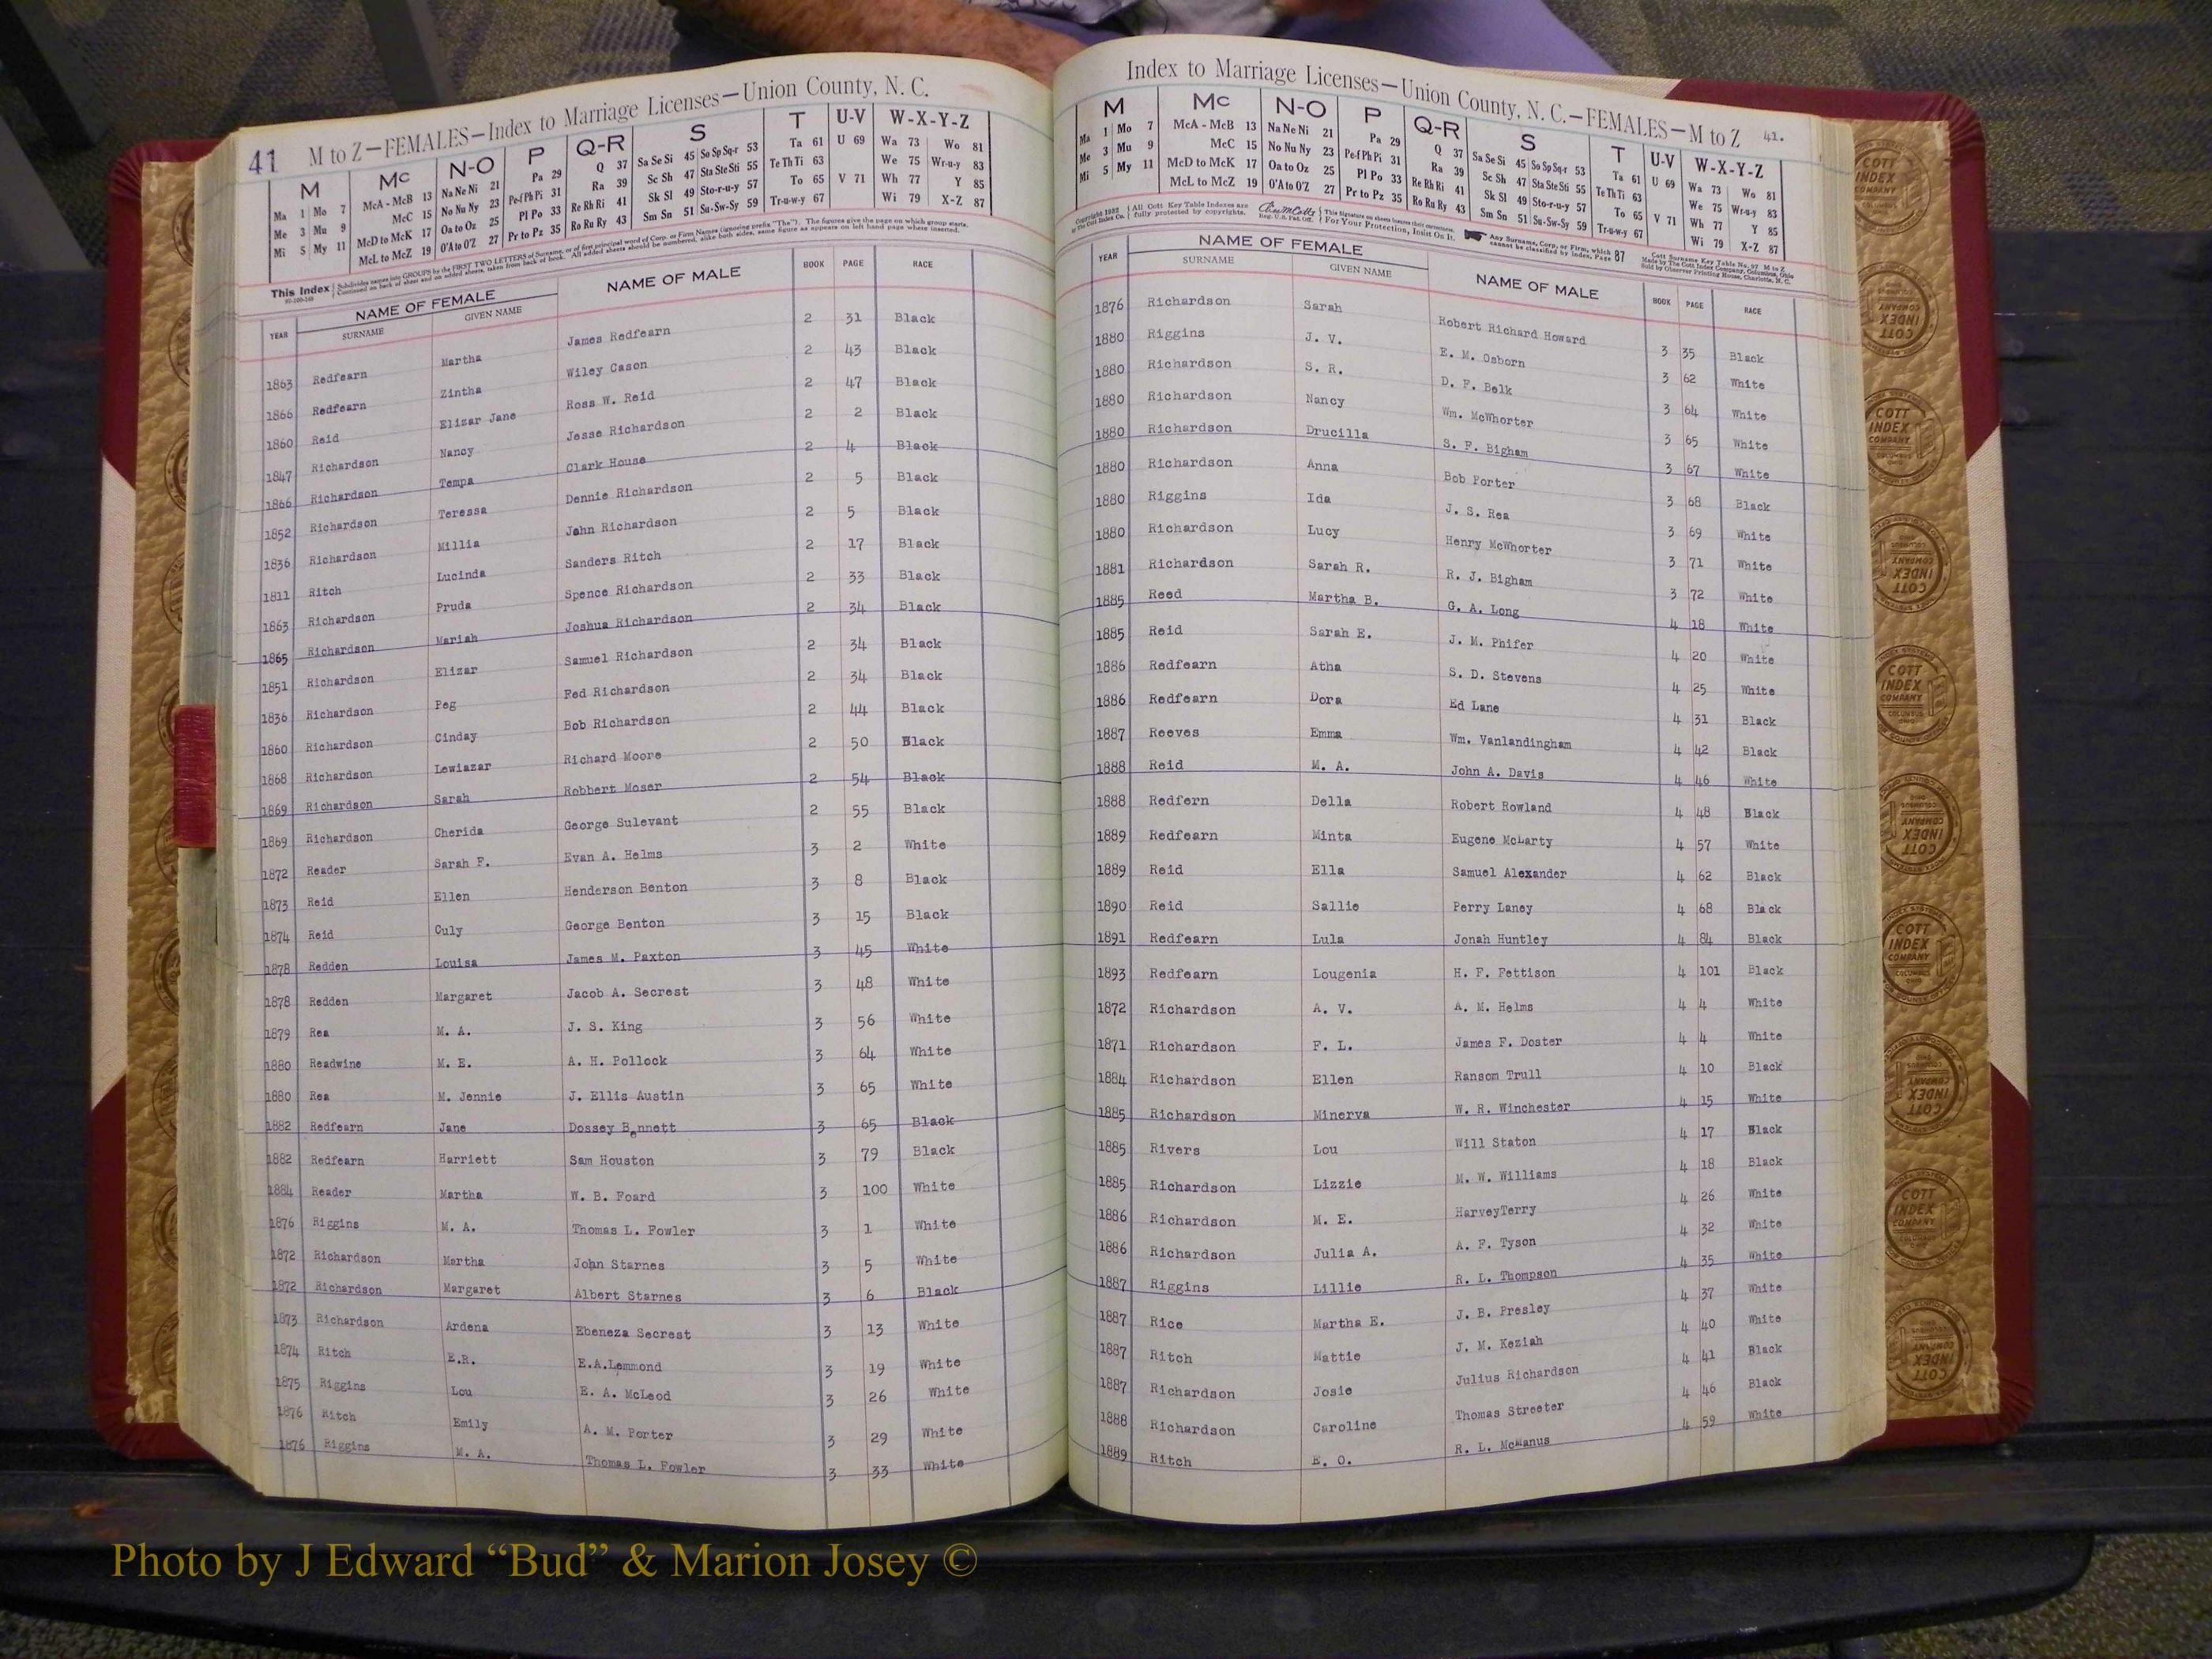 41 M to Z—FEMALES—Index to Marriage Licenses—Union County, N. C.
M Mc N-O P Q-R S T U-V W-X-Y-Z
Ma 1 Mo 7 McA - McB 13 Na Ne Ni 21 Pa 29 Q 37 Sa Se Si 45 So Sp Sq-r 53 Ta 61 U 69 Wa 73 Wo 81
Me 3 Mu 9 McC 15 No Nu Ny 23 Pe-f Ph Pi 31 Ra 39 Sc Sh 47 Sta Ste Sti 55 Te Th Ti 63 We 75 Wr-u-y 83
Mi 5 My 11 McD to McK 17 Oa to Oz 25 Pl Po 33 Re Rh Ri 41 Sk Sl 49 Sto-r-u-y 57 To 65 V 71 Wh 77 Y 85
McL to McZ 19 O'A to O'Z 27 Pr to Pz 35 Ro Ru Ry 43 Sm Sn 51 Su-Sw-Sy 59 Tr-u-w-y 67 Wi 79 X-Z 87
This Index Subdivides names into GROUPS by the FIRST TWO LETTERS of Surname, or of first principal word of Corp. or Firm Names (ignoring prefix "The"). The figures give the page on which group starts.
Continued on back of sheet and on added sheets, taken from back of book. All added sheets should be numbered, alike both sides, same figure as appears on left hand page where inserted.
YEAR NAME OF FEMALE NAME OF MALE BOOK PAGE RACE
SURNAME GIVEN NAME
1863 Redfearn Martha James Redfearn 2 31 Black
1866 Redfearn Zintha Wiley Cason 2 43 Black
1860 Reid Elizar Jane Ross W. Reid 2 47 Black
1847 Richardson Nancy Jesse Richardson 2 2 Black
1866 Richardson Tempa Clark House 2 4 Black
1852 Richardson Teressa Dennie Richardson 2 5 Black
1836 Richardson Millia John Richardson 2 5 Black
1811 Ritch Lucinda Sanders Ritch 2 17 Black
1863 Richardson Pruda Spence Richardson 2 33 Black
1865 Richardson Mariah Joshua Richardson 2 34 Black
1851 Richardson Elizar Samuel Richardson 2 34 Black
1836 Richardson Peg Fed Richardson 2 34 Black
1860 Richardson Cinday Bob Richardson 2 44 Black
1868 Richardson Lewiazar Richard Moore 2 50 Black
1869 Richardson Sarah Robbert Moser 2 54 Black
1869 Richardson Cherida George Sulevant 2 55 Black
1872 Reader Sarah F. Evan A. Helms 3 2 White
1873 Reid Ellen Henderson Benton 3 8 Black
1874 Reid Culy George Benton 3 15 Black
1878 Redden Louisa James M. Paxton 3 45 White
1878 Redden Margaret Jacob A. Secrest 3 48 White
1879 Rea M. A. J. S. King 3 56 White
1880 Readwine M. E. A. H. Pollock 3 64 White
1880 Rea M. Jennie J. Ellis Austin 3 65 White
1882 Redfearn Jane Dossey Bennett 3 65 Black
1882 Redfearn Harriett Sam Houston 3 79 Black
1884 Reader Martha W. B. Foard 3 100 White
1876 Riggins M. A. Thomas L. Fowler 3 1 White
1872 Richardson Martha John Starnes 3 5 White
1872 Richardson Margaret Albert Starnes 3 6 Black
1873 Richardson Ardena Ebeneza Secrest 3 13 White
1874 Ritch E.R. E.A.Lemmond 3 19 White
1875 Riggins Lou E. A. McLeod 3 26 White
1876 Ritch Emily A. M. Porter 3 29 White
1876 Riggins M. A. Thomas L. Fowler 3 33 White
Index to Marriage Licenses—Union County, N. C.—FEMALES—M to Z 41.
M Mc N-O P Q-R S T U-V W-X-Y-Z
Ma 1 Mo 7 McA - McB 13 Na Ne Ni 21 Pa 29 Q 37 Sa Se Si 45 So Sp Sq-r 53 Ta 61 U 69 Wa 73 Wo 81
Me 3 Mu 9 McC 15 No Nu Ny 23 Pe-f Ph Pi 31 Ra 39 Sc Sh 47 Sta Ste Sti 55 Te Th Ti 63 We 75 Wr-u-y 83
Mi 5 My 11 McD to McK 17 Oa to Oz 25 Pl Po 33 Re Rh Ri 41 Sk Sl 49 Sto-r-u-y 57 To 65 V 71 Wh 77 Y 85
McL to McZ 19 O'A to O'Z 27 Pr to Pz 35 Ro Ru Ry 43 Sm Sn 51 Su-Sw-Sy 59 Tr-u-w-y 67 Wi 79 X-Z 87
All Cott Key Table Indexes are fully protected by copyrights. For Your Protection, Insist On It. Any Surname, Corp. or Firm, which cannot be classified by Index, Page 87
Cott Surname Key Table No. 97 M to Z
Made by The Cott Index Company, Columbus, Ohio
Sold by Observer Printing House, Charlotte, N. C.
YEAR NAME OF FEMALE NAME OF MALE BOOK PAGE RACE
SURNAME GIVEN NAME
1876 Richardson Sarah Robert Richard Howard 3 35 Black
1880 Riggins J. V. E. M. Osborn 3 62 White
1880 Richardson S. R. D. F. Belk 3 64 White
1880 Richardson Nancy Wm. McWhorter 3 65 White
1880 Richardson Drucilla S. F. Bigham 3 67 White
1880 Richardson Anna Bob Porter 3 68 Black
1880 Riggins Ida J. S. Rea 3 69 White
1880 Richardson Lucy Henry McWhorter 3 71 White
1881 Richardson Sarah R. R. J. Bigham 3 72 White
1885 Reed Martha B. G. A. Long 4 18 White
1885 Reid Sarah E. J. M. Phifer 4 20 White
1886 Redfearn Atha S. D. Stevens 4 25 White
1886 Redfearn Dora Ed Lane 4 31 Black
1887 Reeves Emma Wm. Vanlandingham 4 42 Black
1888 Reid M. A. John A. Davis 4 46 White
1888 Redfern Della Robert Rowland 4 48 Black
1889 Redfearn Minta Eugene McLarty 4 57 White
1889 Reid Ella Samuel Alexander 4 62 Black
1890 Reid Sallie Perry Laney 4 68 Black
1891 Redfearn Lula Jonah Huntley 4 84 Black
1893 Redfearn Lougenia H. F. Fettison 4 101 Black
1872 Richardson A. V. A. M. Helms 4 4 White
1871 Richardson F. L. James F. Doster 4 4 White
1884 Richardson Ellen Ransom Trull 4 10 Black
1885 Richardson Minerva W. R. Winchester 4 15 White
1885 Rivers Lou Will Staton 4 17 Black
1885 Richardson Lizzie M. W. Williams 4 18 Black
1886 Richardson M. E. HarveyTerry 4 26 White
1886 Richardson Julia A. A. F. Tyson 4 32 White
1887 Riggins Lillie R. L. Thompson 4 35 White
1887 Rice Martha E. J. B. Presley 4 37 White
1887 Ritch Mattie J. M. Keziah 4 40 White
1887 Richardson Josie Julius Richardson 4 41 Black
1888 Richardson Caroline Thomas Streeter 4 46 Black
1889 Ritch E. O. R. L. McManus 4 59 White
COTT INDEX COMPANY
Photo by J Edward “Bud” & Marion Josey ©